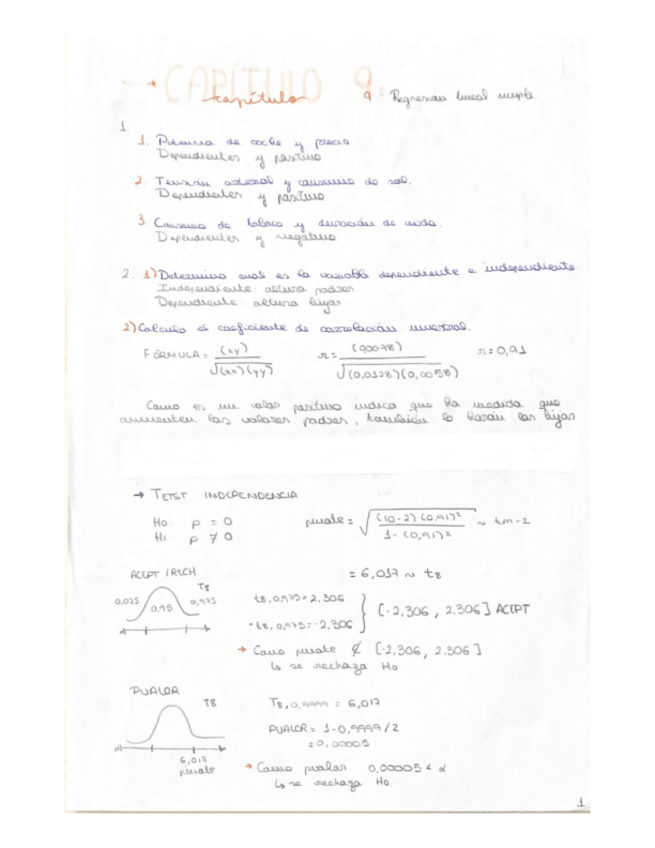 CAPÍTULO 9:
capítulo 9 Regresion lineal simple
1
1. Potencia de coche y precio
Dependientes y positivo
2. Tensión arterial y consumo de sal.
Dependientes y positivo
3. Consumo de tabaco y duración de vida.
Dependientes y negativo
2. 1) Determina cual es la variable dependiente e independiente.
Independiente: altura padres
Dependiente: altura hijas
2) Calcula el coeficiente de correlación muestral.
FÓRMULA = (xy) / √(xx)(yy) r = (0,0078) / √(0,0128)(0,0058) r = 0,91
Como es un valor positivo indica que ha medida que
aumenten los valores padres, también lo harán las hijas
→ TETST INDEPENDENCIA
Ho: ρ = 0
H1: ρ ≠ 0
pivote = √ (10-2)(0,91)² / 1-(0,91)² ~ tn-2
= 6,017 ~ t8
ACEPT / RECH
T8
0,025 0,95 0,975
t8,0,975 = 2,306
-t8,0,975 = -2,306
[-2,306, 2,306] ACEPT
→ Como pivote ∉ [-2,306, 2.306]
↳ se rechaza Ho
PVALOR
T8
6,017
pivote
T8,0,9999 = 6,017
PVALOR = 1-0,9999/2
= 0,00005
→ Como pvalor 0,00005 < α
↳ se rechaza Ho.
1